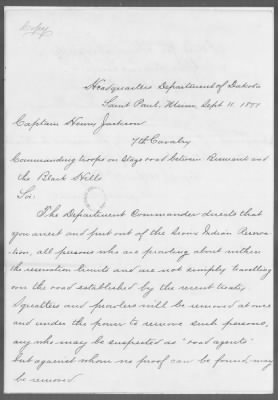 Copy
Headquarters Department of Dakota
Saint Paul, Minn, Sept 11. 1877
Captain Henry Jackson
7th Cavalry
Commanding troops on stage road between Bismarck and
the Black Hills
Sir:
The Department Commander directs that
you arrest and put out of the Sioux Indian Reserva-
tion, all persons who are prowling about within
the reservation limits and are not simply travelling
over the road established by the recent treaty.
Squatters and prowlers will be removed at once
and under the power to remove such persons,
any who may be suspected as "road agents"
but against whom no proof can be found, may
be removed